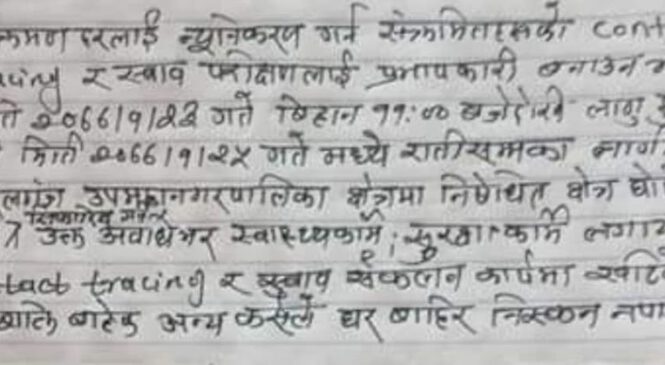 क्रमण दरलाई न्यूनिकरण गर्न संक्रमितहरुको cont
acing र स्वाव परीक्षणलाई प्रभावकारी बनाउन
ते २०७७।१।२३ गते बिहान ११:०० बजेदेखि लागु
मिती २०७७।१।२५ गते मध्ये रातीसम्मका लागि
उपमहानगरपालिका क्षेत्रमा निषेधित क्षेत्र घो
सिफारिस गर्ने
उक्त अवधिभर स्वास्थ्यकर्मी, सुरक्षाकर्मी लगाय
tact tracing र स्वाव संकलन कार्यमा खटि
बाहेक अन्य कसैले घर बाहिर निस्कन नपा